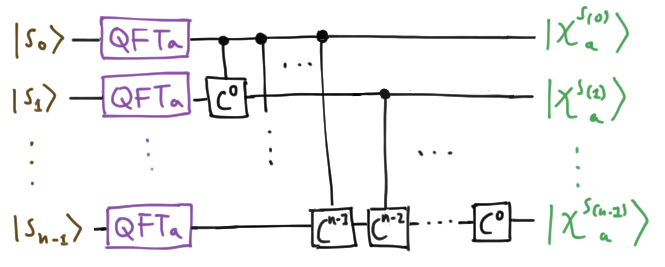 |S₀⟩ QFTₐ ... |χₐ^S(0)⟩
|S₁⟩ QFTₐ C⁰ |χₐ^S(1)⟩
⋮ ⋮ ⋮ ... ⋮
|Sₙ₋₁⟩ QFTₐ Cⁿ⁻¹ Cⁿ⁻² ... C⁰ |χₐ^S(n-1)⟩